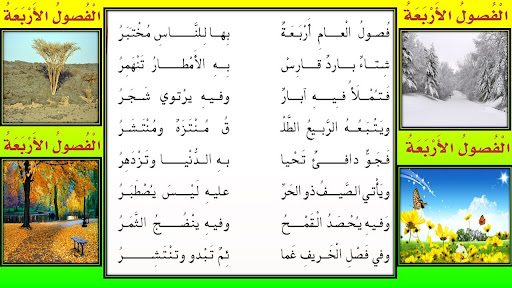 الْفُصولُ الأَرْبَعَةُ
الْفُصولُ الأَرْبَعَةُ
فُصولُ الْعـامِ أَرْبَعَـةٌ بِهـا لِلنَّـاسِ مُخْتَبَرُ
شِتـاءٌ بـارِدٌ قـارِسْ بِـهِ الأَمْطـارُ تَنْهَمِرُ
فَتَمْتَلأُ فيـهِ آبـارٌ وَفيـهِ يَرْتَوي شَجَرُ
وَيَتْبَعُـهُ الرَّبيعُ الطَّلْـ قُ مُنْتَزَهٌ وَمُنْتَشَرُ
فَجَوٌّ دافِئٌ تَحْيا بِهِ الدُّنْيـا وَتَزْدَهِرُ
وَيَأْتي الصَّيفُ ذو الحَرِّ عليـهِ لَيْسَ يُصْطَبَرُ
وَفيهِ يُحْصَدُ الْقَمْـحُ وَفيهِ يَنْضُجُ الثَّمَرُ
وَفي فَصْلِ الْخَريفِ غَما ئِمٌ تَبْدو وَتَنْتَشِرُ
الْفُصولُ الأَرْبَعَةُ
الْفُصولُ الأَرْبَعَةُ